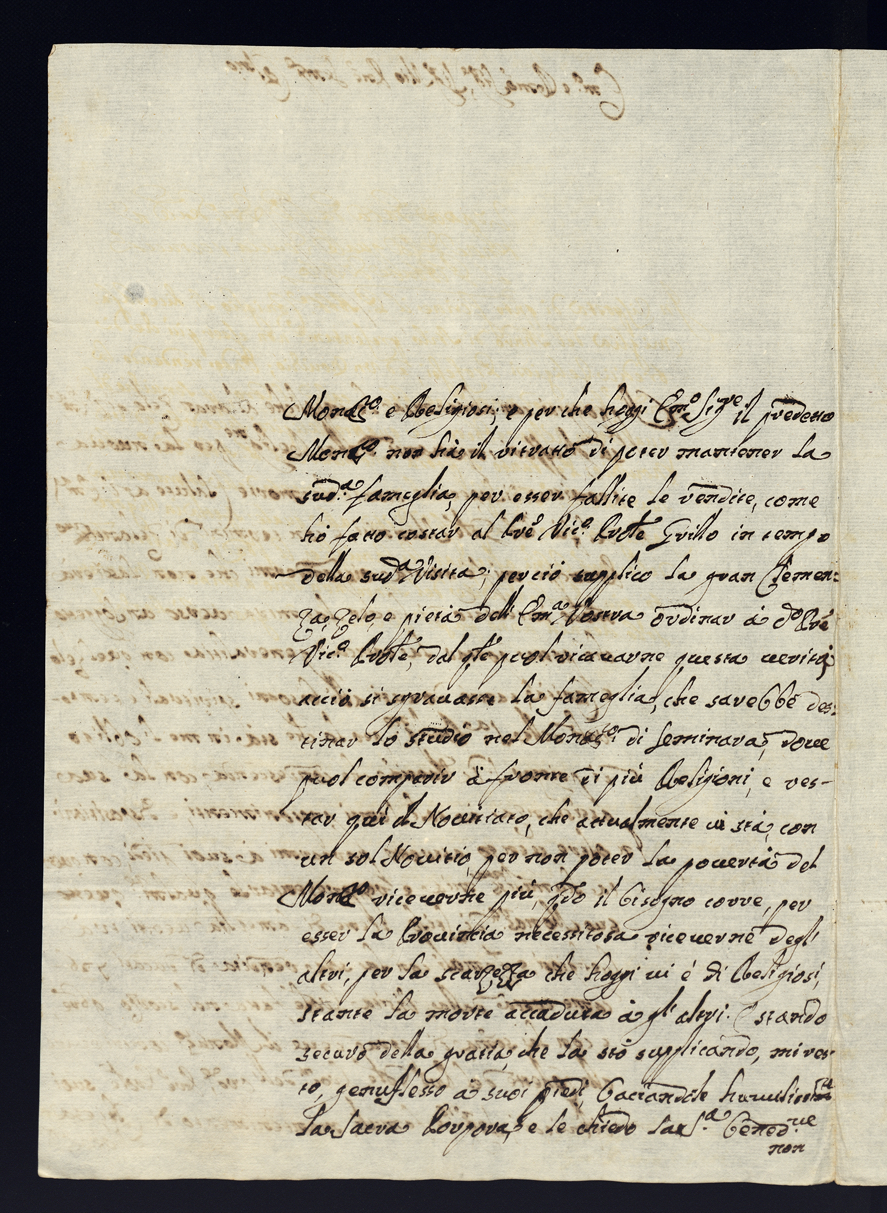 Monast.º e Religiosi; e per che hoggi Em.º Sig.re il predetto
Monast.º non hà il ritratto di poter mantener la
sud.a fameglia, per esser fallite le rendite, come
hò fatto costar al Pre Vic.º Grillo in tempo
della sud.a Visita; perciò supplico la gran Clemen:
za, Zelo, e pietà dell'Em.a Vostra ordinar à d.º Pre
Vic.º dal q.le puol ricavarne questa verità,
acciò si sgravasse la fameglia, che sarebbe des:
tinar lo studio nel Monast.º di Seminara, dove
puol comparir à fronte di più Religioni, e res-
tar quì il Novitiato, che actualmente vi stà, con
un sol Novitio, per non poter la povertà del
Monast.º riceverne più, q.do il bisogno corre, per
esser la Provintia necessitosa riceverne degl'
altri, per la scarzezza che hoggi vi è di Religiosi,
stante la morte accaduta à gl'altri. E stando
securo della gratia, che la stò supplicando, mi res-
to, genuflesso à suoi piedi, baciandole humilissim.te
la Sacra Porpora, e le chiedo la S.a Bened.ne
non